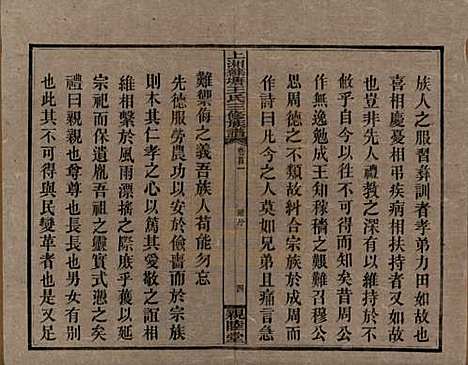 族人之服習彝訓者孝弟力田如故
喜相慶憂相弔疾病相扶持者又如故
也豈非先人禮教之澤有以深入人心歟
作無逸勉成王知稼穡之艱難召穆公
思周德之不類故糾合宗族於成周而
作詩曰凡今之人莫如兄弟且痛言急
上湘蘇塘王氏三修族譜
卷首一
譜序
四
親睦堂
難禦侮之義吾族人苟能勿忘
先德服勞農功以安於儉嗇而於宗族
則木其仁孝之心以生其愛敬之誼相
與相繫於風雨漂搖之際庶乎獲以延
宗祀而保遺胤吾祖之靈實式憑之矣
書曰親親也尊尊也長長也男女有別此
其不可得與民變革者也是又足